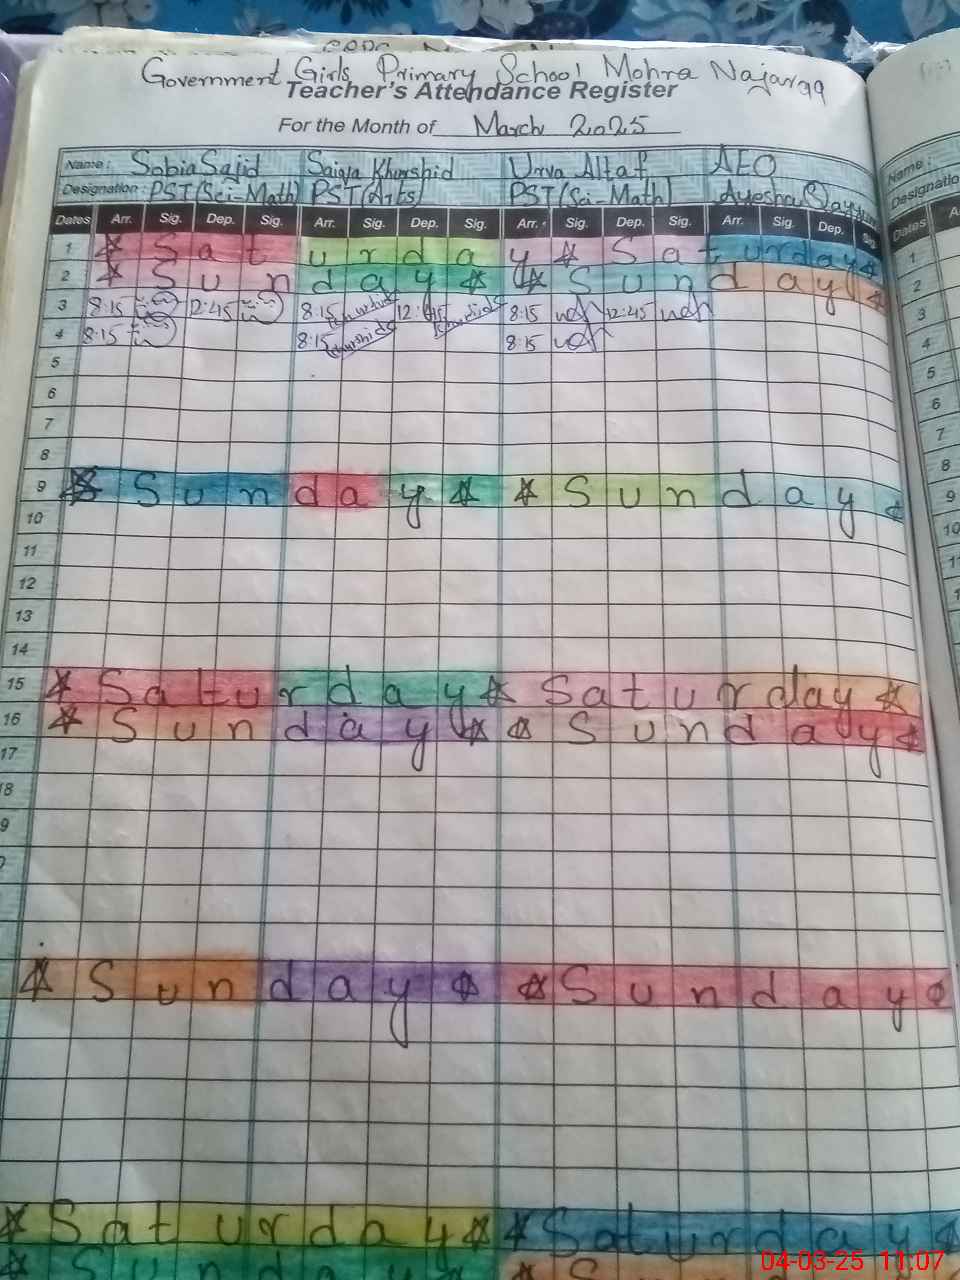 Government Girls Primary School Mohra Najargg
Teacher's Attendance Register
For the Month of March 2025
Name: Sobia Sajid Saiqa Khurshid Urva Altaf AEO
Designation: PST(Sci-Math) PST(Arts) PST(Sci-Math) Ayesha
Dates Arr. Sig. Dep. Sig. Arr. Sig. Dep. Sig. Arr. Sig. Dep. Sig. Arr. Sig. Dep. Sig.
1 Saturday Saturday
2 Sunday Sunday
3 8:15 12:45 8:15 12:45 8:15 12:45
4 8:15 8:15 8:15
5
6
7
8
9 Sunday Sunday
10
11
12
13
14
15 Saturday Saturday
16 Sunday Sunday
17
18
9
Sunday Sunday
Saturday Saturday
Sunday
Name:
Designatio
Dates
1
2
3
4
5
6
7
8
9
10
04-03-25 11:07